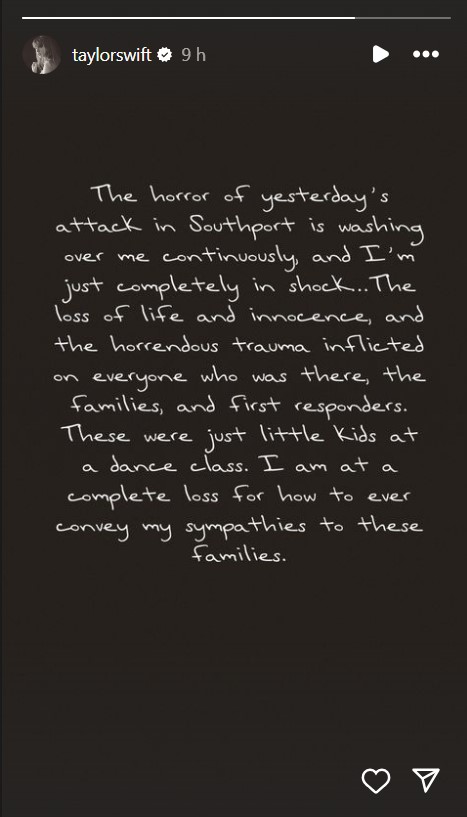 taylorswift 9 h
The horror of yesterday's
attack in Southport is washing
over me continuously, and I'm
just completely in shock...The
loss of life and innocence, and
the horrendous trauma inflicted
on everyone who was there, the
families, and first responders.
These were just little kids at
a dance class. I am at a
complete loss for how to ever
convey my sympathies to these
families.